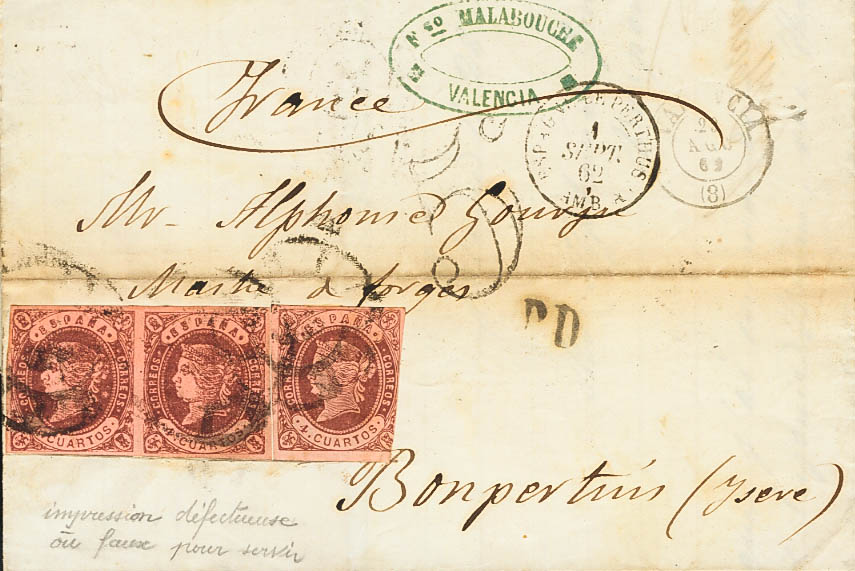 Fso MALABOUCHE
VALENCIA
France
ESPAGNE LE PERTHUS
1
SEPT.
62
AMB.
AGO
62
(8)
Mr Alphonse Gourju
Maitre de forges
PD
ESPAÑA
CORREOS
CORREOS
4 CUARTOS
ESPAÑA
CORREOS
CORREOS
4 CUARTOS
ESPAÑA
CORREOS
CORREOS
4 CUARTOS
Bonpertuis (Ysere)
impression défectueuse
ou faux pour servir